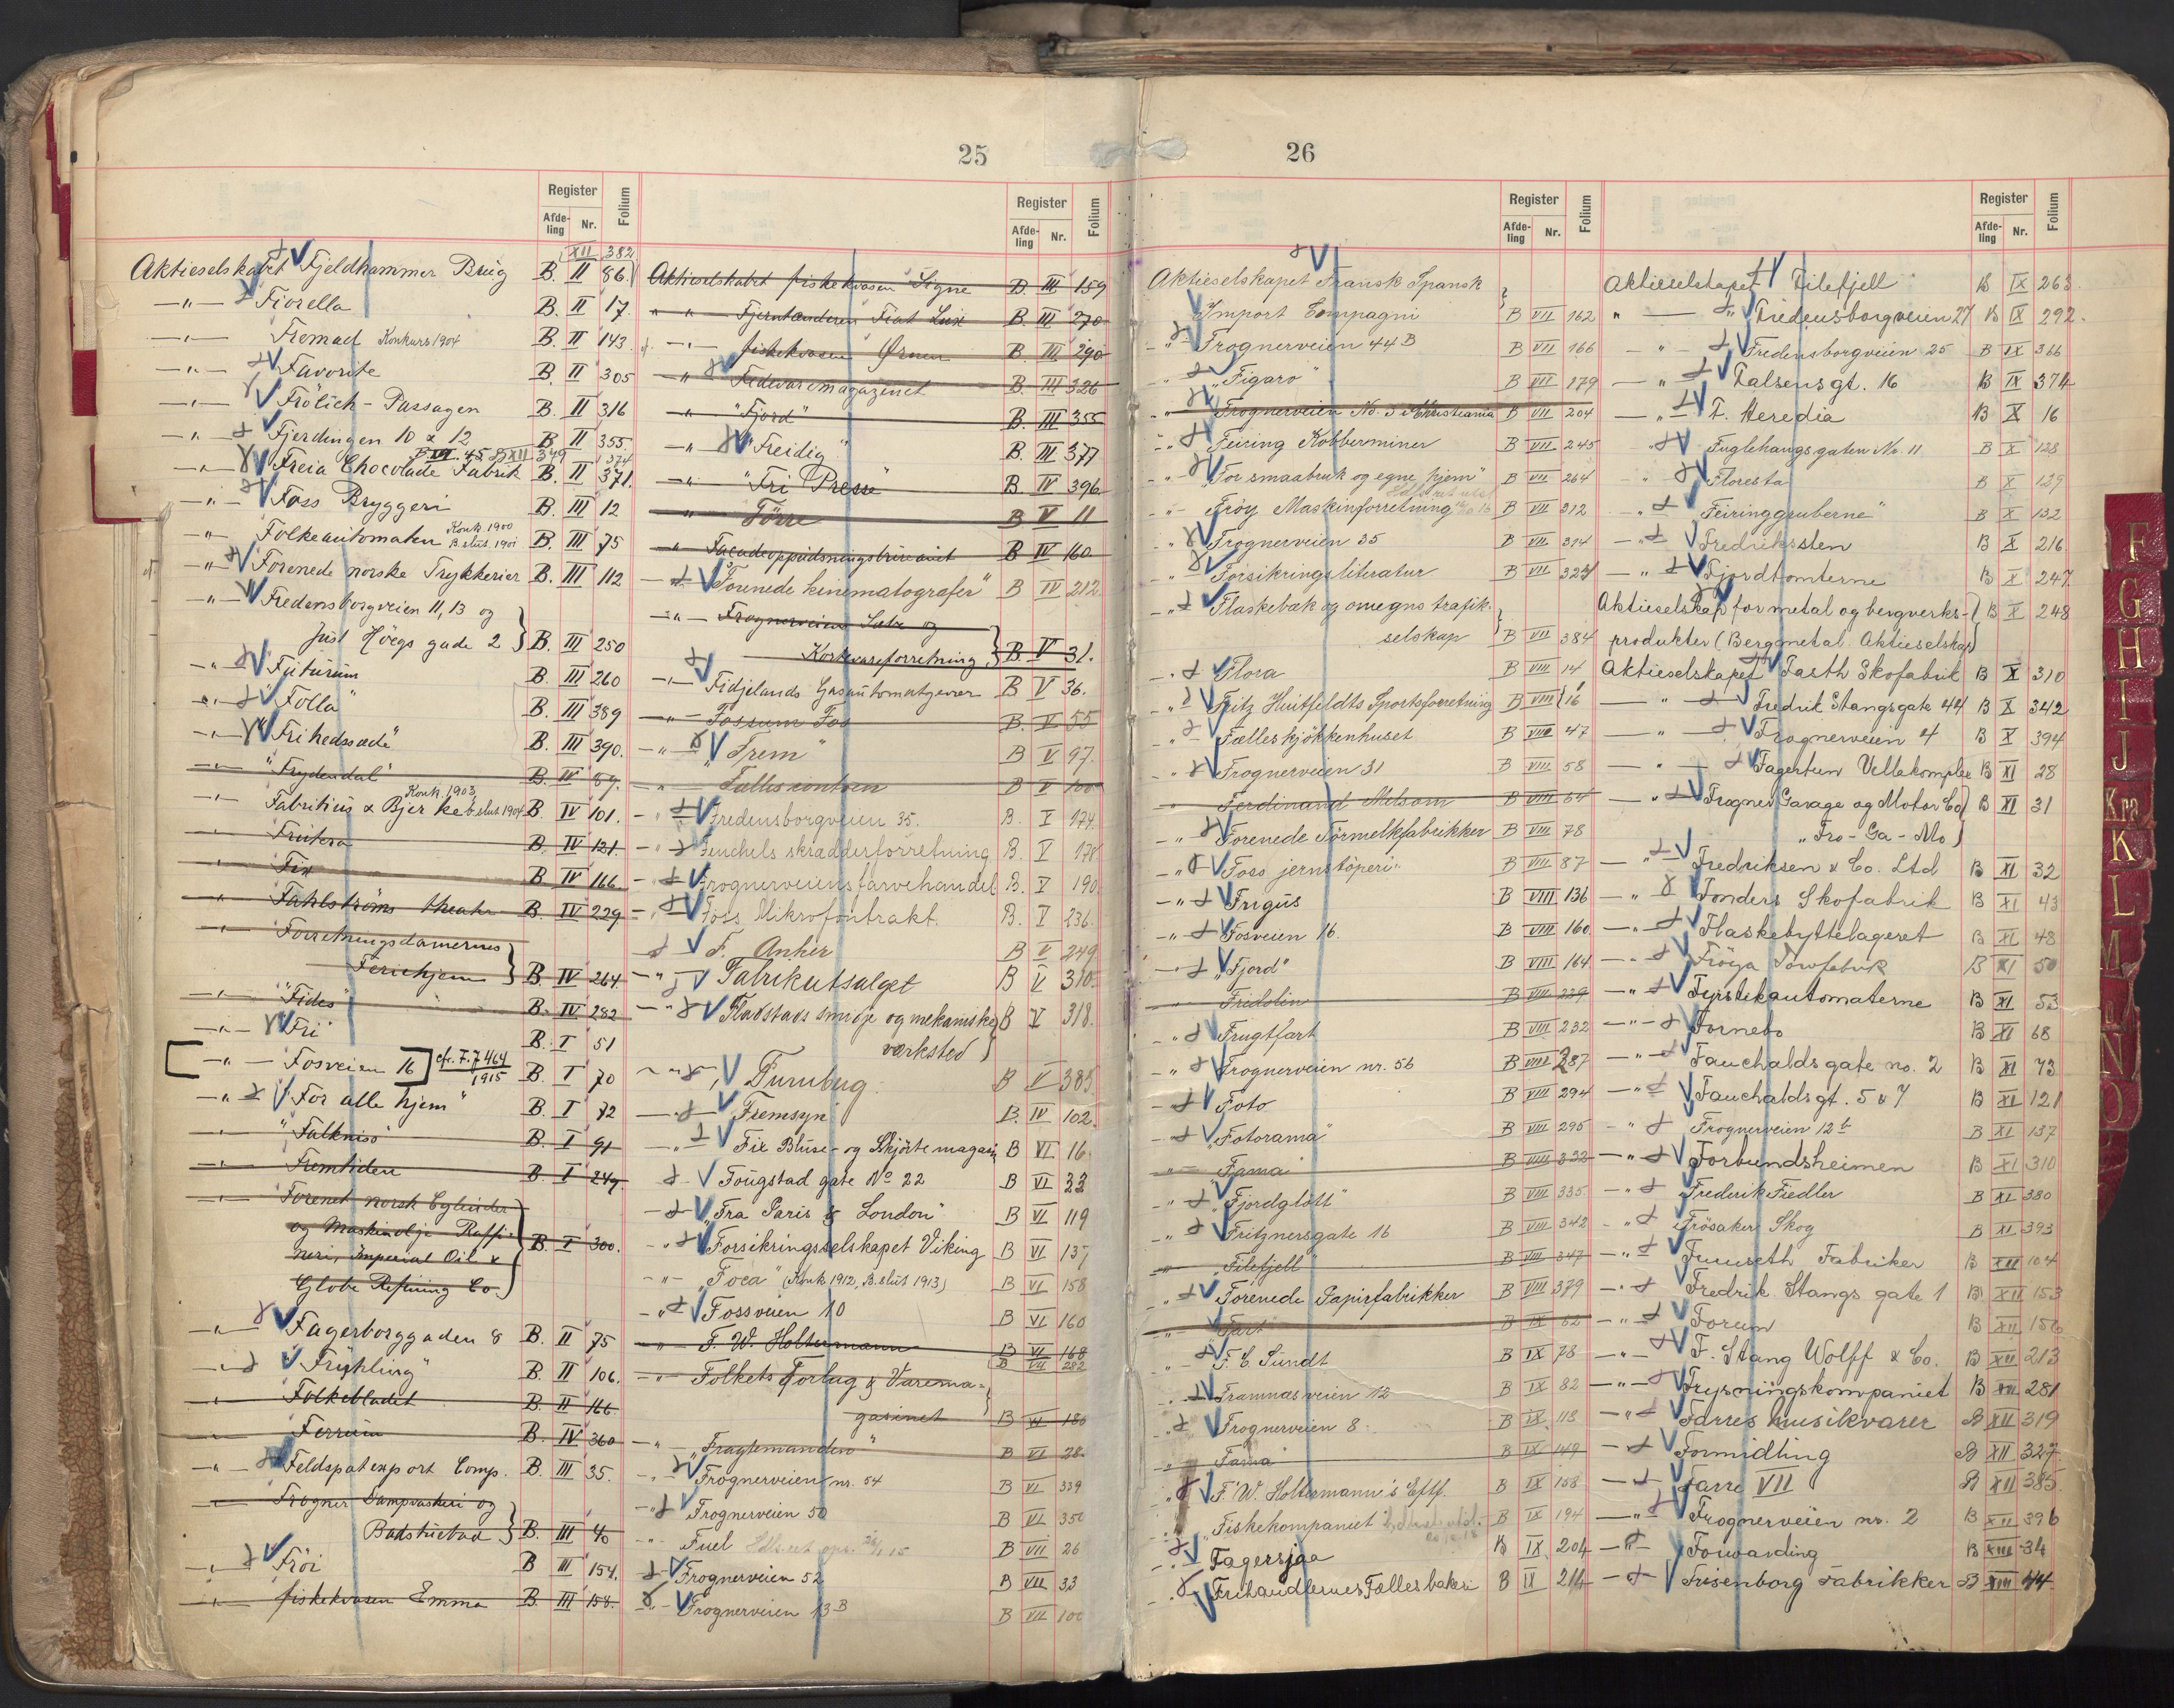 25
Register
Folium
Afde-
ling
Nr.
XII 382
Aktieselskabet Fjeldhammer Brug B. II 86
—"— Fiorella B. II 17.
—"— Fremad Konkurs 1904 B. II 143
—"— Favorite B. II 305
—"— Frölich-Passagen B. II 316
—"— Fjerdingen 10 & 12 B. II 355
—"— Freia Chocolade Fabrik B. II 371.
—"— Foss Bryggeri B. III 12
—"— Folkeautomaten Konk. 1900 B. slut. 1901 B. III 75
—"— Forenede norske Trykkerier B. III 112
—"— Fredensborgveien 11, 13 og
Just Höegs gade 2 B. III 250
—"— Futurum B. III 260
—"— "Folla" B. III 389
—"— "Frihedssæde" B. III 390.
—"— "Frydendal" B. IV 89.
—"— Fabritius & Bjerke Konk. 1903, b. slut 1904 B. IV 101.
—"— Frutera B. IV 131.
—"— Fix B. IV 166
—"— Fahlströms theater B. IV 229
—"— Forretningsdamernes
Feriehjem B. IV 264
—"— "Fides" B. IV 282
—"— "Fri" B. I 51
—"— Fosveien 16 cfr. F. 7464/1915 B. I 70
—"— "For alle hjem" B. I 72
—"— "Falkniss" B. I 91
—"— Fremtiden B. I 249.
—"— Forenet norsk Cylinder
og Maskinolje Raffi-
neri, Imperial Oil &
Globe Refining Co B. I 300.
—"— Fagerborggaden 8 B. II 75
—"— "Frühling" B. II 106.
—"— Folkebladet B. II 166
—"— Ferrum B. IV 360
—"— Feldspatexport Comp. B. III 35.
—"— Frogner Dampvaskeri og
Badstuebad B. III 40
—"— Fröi B III 154.
—"— fiskekvasen Emma B. III 158.
Register
Folium
Afde-
ling
Nr.
Aktieselskabet fiskekvasen Signe B. III 159
" " Fjerntænderen Fiat Lux B. III 270
—"— fiskekvasen Ørnen B. III 290
—"— Fedevaremagazinet B. III 326
—"— "Fjord" B. III 355
—"— "Freidig" B. III 377
—"— "Fri Presse" B. IV 396
—"— Förre B V 11
—"— Facadeoppudsningsbureauet B IV 160
—"— "Forenede kinematografer" B IV 212
—"— Frognerveiens Sæbe og
Korkvareforretning B. V 31.
—"— Fidjelands Gasautomatgevær B V 36.
—"— Fossum Fos B. V 55
—"— "Frem" B V 97.
—"— Fælles contoen B V 100
—"— Fredensborgveien 35. B. V 174.
—"— Feuchels skrædderforretning B. V 178
—"— Frognerveiens farvehandel B. V 190
—"— Foss Mikrofonbrakt. B. V 236.
F. Anker B V 249
—"— Fabrikutsalget B V 310
—"— Fladstads smidje og mekaniske
verksted B V 318.
—"— Furubug B V 385
—"— "Fremsyn" B. IV 102.
—"— Fix Bluse- og Skjörte magasin B VI 16
Fougstad gate No 22 B VI 33
—"— "Fra Paris & London" B VI 119
—"— Forsikringsselskapet Viking B VI 137
—"— "Foca" (Konk 1912, B. slut 1913) B VI 158
—"— Fossveien 10 B VI 160
—"— F. W. Holtermann B VI 168
—"— Folkets Forbug & Varema- B VII 282
gasinet B VI 180
—"— "Fragtemanden" B VI 28
—"— Frognerveien nr. 54 B VI 339
—"— Frognerveien 50 B VI 350
—"— Fuel B VII 26
—"— Frognerveien 52 B VII 33
—"— Frognerveien 13 B B VII 100
26
Register
Folium
Afde-
ling
Nr.
Aktieselskapet Fransk Spansk
Import Compagni B VII 162
—"— Frognerveien 44 B B VII 166
—"— "Figaro" B VII 179
—"— Frognerveien No. 5 Christiania B VII 204
—"— Feiring Kobberminer B VII 245
—"— "For smaabruk og egne hjem" B VII 264
—"— Fröy Maskinforretning B VII 312
—"— Frognerveien 35 B VII 314
—"— Forsikringsliteratur B VII 324
—"— Flaskebæk og omegns trafik-
selskap B VII 384
—"— Flora B VIII 14
—"— Fritz Huitfeldts Sportsforretning B VIII 16
—"— Fælleskjökkenhuset B VIII 47
—"— Frognerveien 31 B VIII 58
—"— Ferdinand Melsom B VIII 64
—"— Forenede Törmelkfabrikker B VIII 78
—"— "Foss jernstöperi" B VIII 87
—"— Frigus B VIII 136
—"— Fosveien 16. B VIII 160
—"— "Fjord" B VIII 164
—"— Fridolin B VIII 229
—"— Frugtfart B VIII 232
—"— Frognerveien nr. 56 B VIII 287
—"— Foto B VIII 294
—"— "Fotorama" B VIII 295
—"— Fama B VIII 322
—"— "Fjordglött" B VIII 335
—"— Fritznersgate 16 B VIII 342
—"— "Filefjell" B VIII 347
—"— Forenede Papirfabrikker B VIII 379
—"— Fart B IX 62
—"— F. C. Sundt B IX 78
—"— Framnæsveien 12 B IX 82
—"— Frognerveien 8 B IX 118
—"— Fama B IX 149
—"— F. W. Holtermann's Eftf. B IX 158
—"— Fiskekompaniet B IX 194
—"— Fagersjaa B IX 204
—"— Frihandlernes Fælles bakeri B IX 214
Register
Folium
Afde-
ling
Nr.
Aktieselskapet Filefjell B IX 263
—"— Fredensborgveien 27 B IX 292.
—"— Fredensborgveien 25 B IX 366
—"— Falsensgt. 16 B IX 374
—"— F. Heredia B X 16
—"— Fuglehaugsgaten No. 11 B X 128
—"— Floresta B X 129
—"— "Feiringgruberne" B X 132
—"— Fredriksten B X 216
—"— Fjordtomterne B X 247
Aktieselskap for metal og bergverks- B X 248
produkter (Bergmetal Aktieselskap)
Aktieselskapet Fasth Skofabrik B X 310
—"— Fredrik Stangsgate 44 B X 342
—"— Frognerveien 4 B X 394
—"— Fagertun Villakomplex B XI 28
—"— Frogner Garage og Motor Co B XI 31
"Fro-Ga-Mo"
—"— Fredriksen & Co. Ltd B XI 32
—"— Fonders Skofabrik B XI 43
—"— Flaskebyttelageret B XI 48
—"— Fröya Towfabrik B XI 50
—"— Fyrstikautomaterne B XI 53
—"— Fornebo B XI 68
—"— Fauchaldsgate no. 2 B XI 73
—"— Fauchaldsgt. 5 & 7 B XI 121
—"— Frognerveien 12 b B XI 137
—"— Forbundsheimen B XI 310
—"— Frederik Fiedler B XI 380
—"— Frösaker Skog B XI 393
—"— Furuseth Fabriker B XII 104
—"— Fredrik Stangs gate 1 B XII 153
—"— Forum B XII 156
—"— F. Stang Wolff & Co. B XII 213
—"— Frysningskompaniet B XII 281
—"— Farres Musikvarer B XII 319
—"— Formidling B XII 327
—"— Farre VII B XII 385
—"— Frognerveien nr. 2 B XII 396
—"— Forwarding B XIII 34
—"— Frisenborg Fabrikker B XIII 44
F
G
H
I
J
K
L
M
N
O